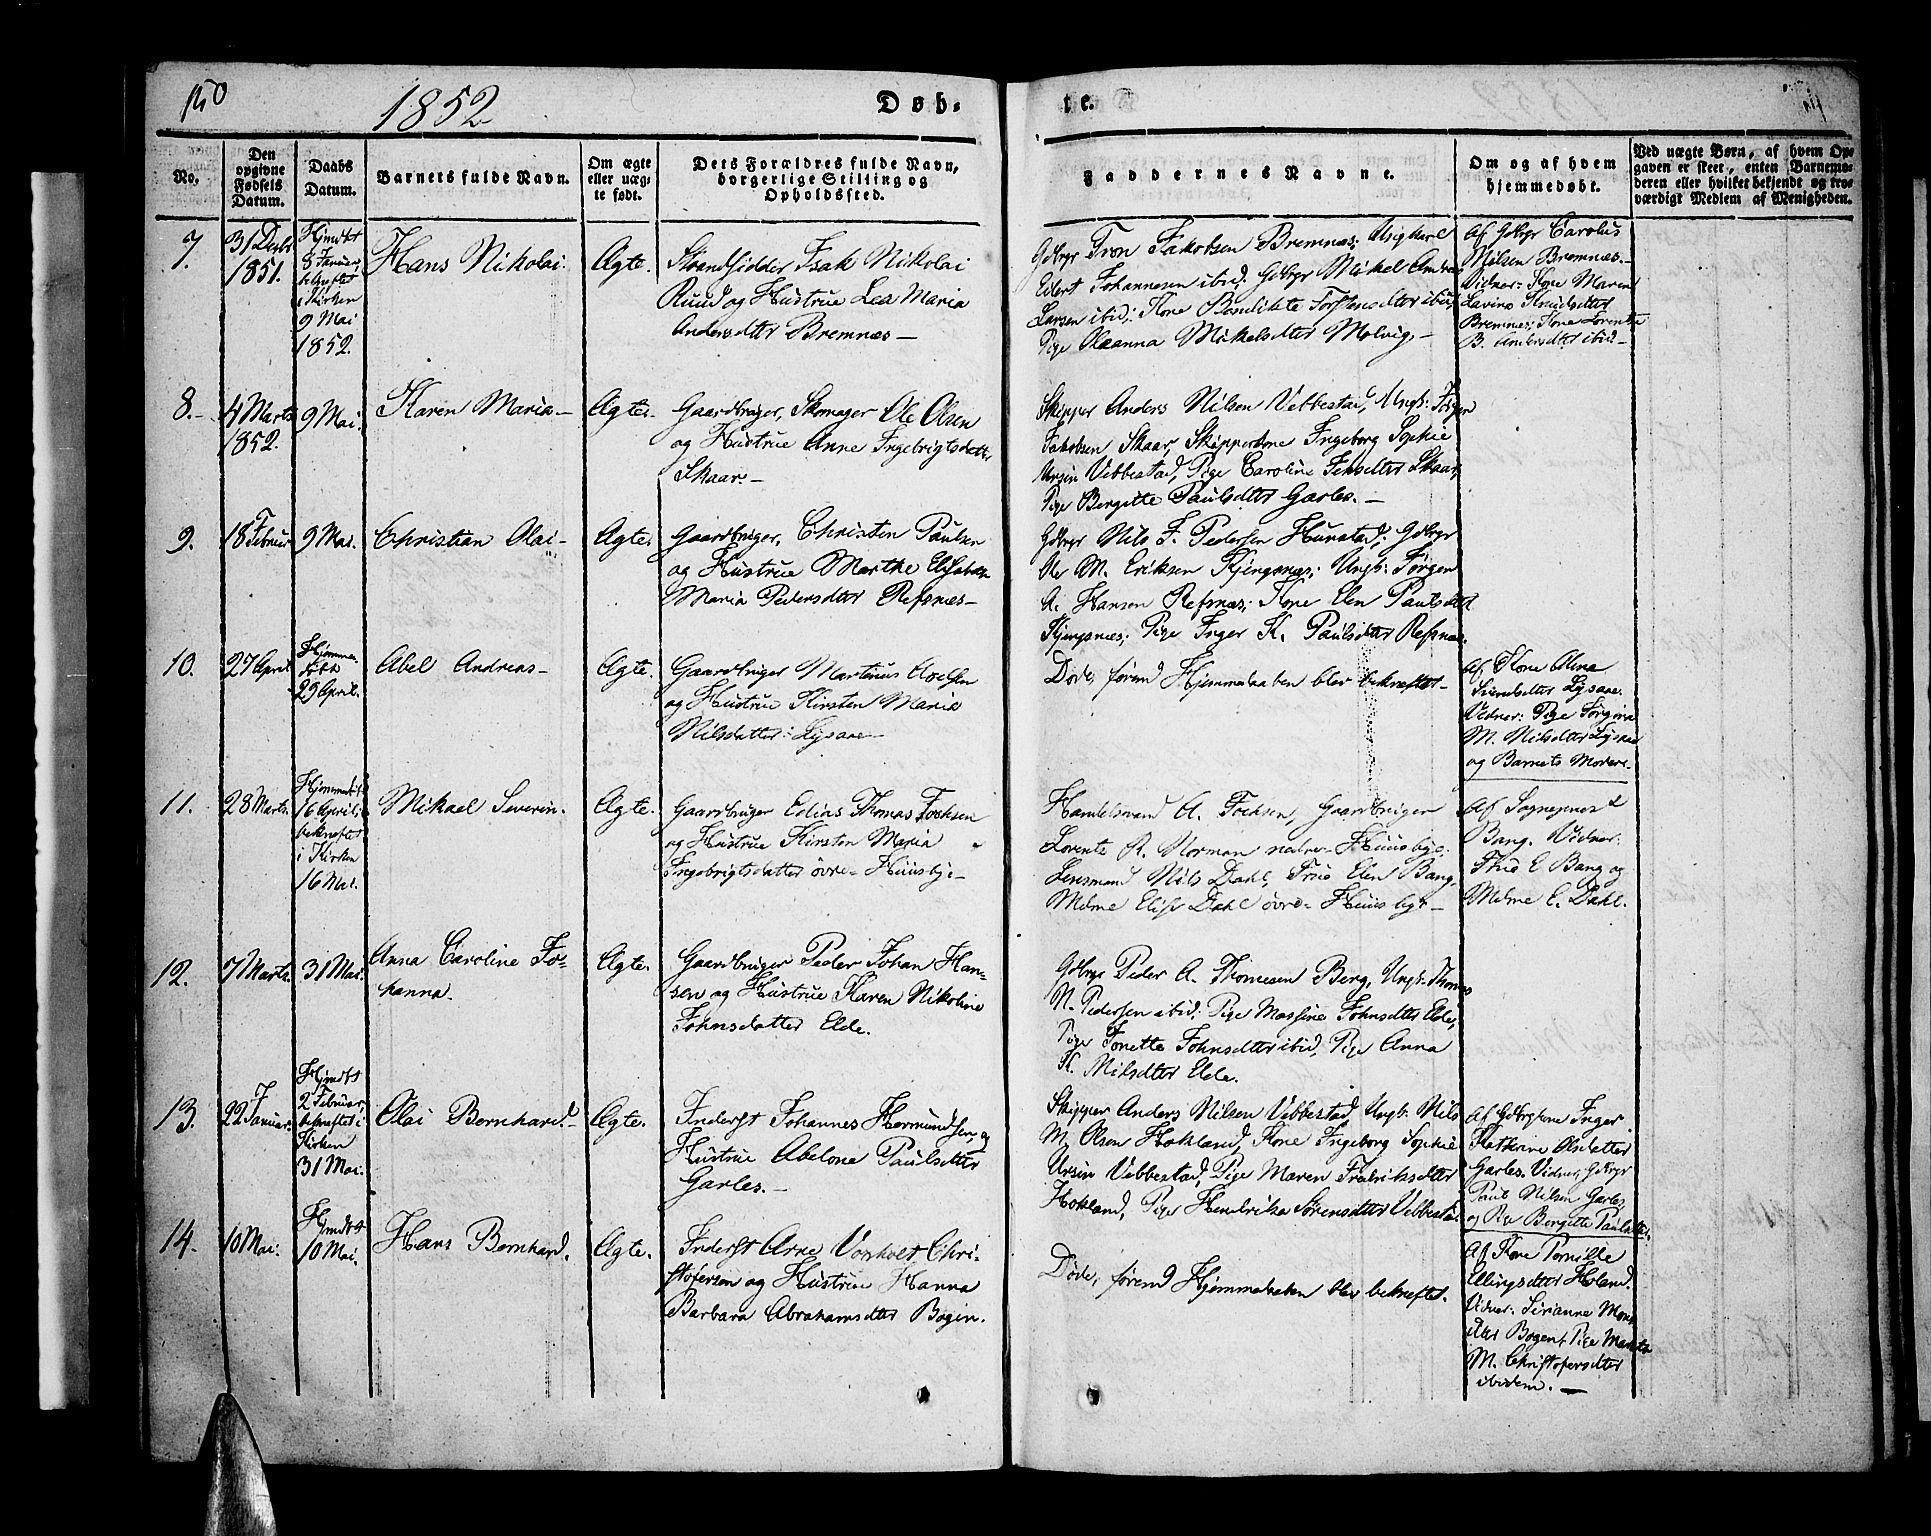 150
1852
Døb-
te.
No.
Den
opgivne
Fødsels
Datum.
Daabs
Datum.
Barnets fulde Navn.
Om ægte
eller uæg-
te født.
Dets Forældres fulde Navn,
borgerlige Stilling og
Opholdssted.
Faddernes Navne.
Om og af hvem
hjemmedøbt.
Ved uægte Børn, af hvem Op-
gaven er skeet, enten Barnemo-
deren eller hvilket bekjendt og tro-
værdigt Medlem af Menigheden.
7.
31 Decbr
1851.
Hjmdbt
8 Januar,
bekræftet
i Kirken
9 Mai
1852.
Hans Nikolai.
Ægte.
Strandsidder Isak Nikolai
Ruud og Hustrue Lea Maria
Andersdtter Bremnæs —
Gdbrgr Tron Jakobsen Bremnæs; Ungkarl
Edert Johannesen ibid; Gdbrgr Mikel Andreas
Larsen ibid; Kone Bendikte Torstensdtter ibid,
Pige Oleanna Mikelsdtter Melvig. —
Af Gdbrgr Carolus
Nilsen Bremnæs. —
Vidner: Kone Maren
Lavina Knudsdtter
Bremnæs; Kone Lorentse
B. Andersdtter ibid —
8. —
4 Marts
1852.
9 Mai.
Karen Maria —
Ægte.
Gaardbruger, Skomager Ole Olsen
og Hustrue Anne Ingebrigtsdatter
Skaar —
Skipper Anders Nilsen Vebbestad, Ungk: Jørgen
Jakobsen Skaar, Skipperkone Ingeborg Sophie
Ursin Vebbestad, Pige Caroline Jensdtter Skaar,
Pige Bergitte Paulsdtter Garles. —
9.
18 Februar
9 Mai.
Christian Olai —
Ægte.
Gaardbruger, Christen Paulsen
og Hustrue Marthe Elisabeth
Maria Pedersdtter Refsnæs —
Gdbrgr Nils F. Pedersen Hunstad; Gdbrgr
Ole M. Eriksen Kjengsnæs; Ungk: Jørgen
A. Hansen Refsnæs; Kone Elen Paulsdatter
Kjengsnæs; Pige Inger K. Paulsdtter Refsnæs.
10.
27 April
Hjemme-
døbt
29 April.
Abel Andreas —
Ægte.
Gaardbruger Martinus
og Hustrue Kirsten Maria
Nilsdatter Lysaae —
Døde, førend Hjemmedaaben blev bekræftet —
Af Kone Olina
Lysaae.
Vidner: Pige Jørgina
M. Nilsdtter Lysaae
og Barnets Moder. —
11.
28 Marts.
Hjemmedøbt
16 April;
bekræftet
i Kirken
16 Mai.
Mikael Severin.
Ægte.
Gaardbruger Edias Thomas Fochsen
og Hustrue Kirsten Maria
Ingebrigtsdatter øvre-Huusbye —
Handelsmand A. Fochsen, Gaardbruger
Lorents R. Norman nedre-Huusbye,
Lensmand Nils Dahl, Frue Elen Bang,
Mdme Elise Dahl øvre-Huusbye —
Af Sognepræst
Bang. Vidner:
Frue E Bang og
Mdme E. Dahl.
12.
7 Marts.
31 Mai.
Anna Caroline Jo-
hanna.
Ægte.
Gaardbruger Peder Johan Han-
sen og Hustrue Karen Nikoline
Johnsdatter Elde.
Gdbrgr Peder A. Thomesen Berg, Ungk: Thomas
N. Pedersen ibid; Pige Massina Johnsdtter Elde,
Pige Jonette Johnsdtter ibid, Pige Anna
K. Nilsdtter Elde.
13.
22 Januar.
Hjmdbt
2 Februar,
bekræftet i
Kirken
31 Mai.
Olai Bernhard.
Ægte.
Inderst Johannes Hermundsen og
Hustrue Abelone Paulsdtter
Garles. —
Skipper Anders Nilsen Vebbestad, Ungk: Nils
M. Olsen Hokland, Kone Ingeborg Sophie
Ursin Vebbestad, Pige Maren Fredriksdtter
Hokland, Pige Hendrika Sørensdtter Vebbestad.
Af Gdbrgkone Inger
Kathrine Olsdatter
Garles. Vidner, Gdbrgr
Paul Nilsen Garles
og Pige Bergitte Paulsdtter
14.
10 Mai.
Hjmdbt
10 Mai.
Hans Bernhard.
Ægte.
Inderst Arne Vonholt Chri-
stofersen og Hustrue Hanna
Barbara Abrahamsdtter Bogen.
Døde, førend Hjemmedaaben blev bekræftet.
Af Kone Pernille
Ellingsdtter Høland.
Vidner: Sirianne
Bogen, Pige
M. Christofersdtter
ibidem. —